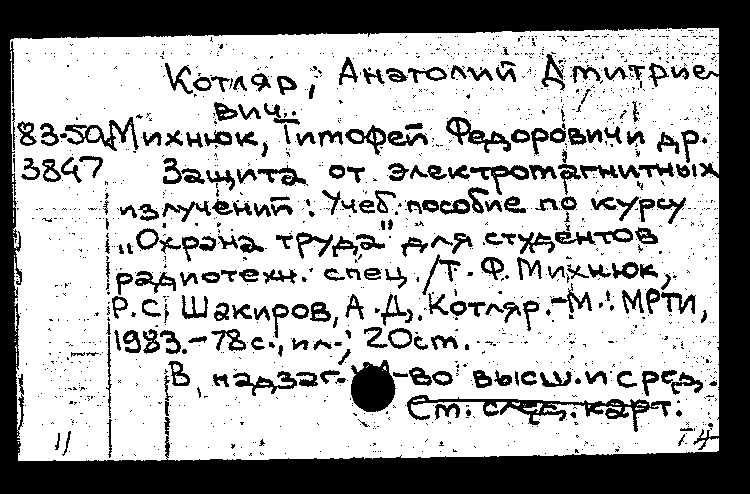 Котляр, Анатолий Дмитрие-
вич.
83-50. Михнюк, Тимофей Федорович и др.
3847 Защита от электромагнитных
излучений: Учеб. пособие по курсу
„Охрана труда" для студентов
радиотехн. спец. /Т. Ф. Михнюк,
Р.С. Шакиров, А.Д. Котляр.-М.: МРТИ,
1983.-78с., ил.; 20см.
В надзаг. -во высш. и сред.
См. след. карт.
11